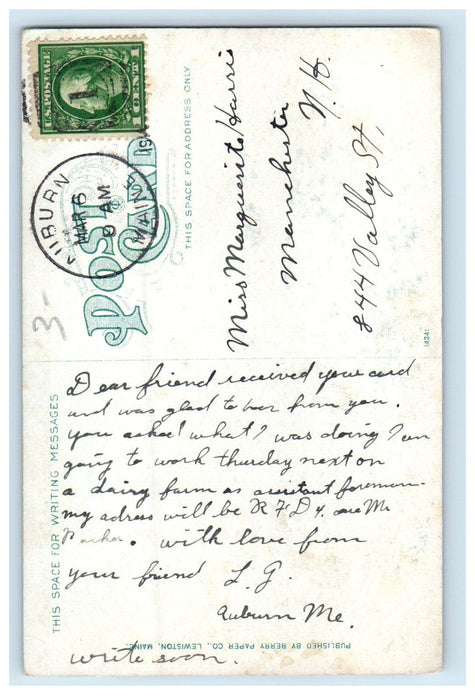 U.S. POSTAGE
1 CENT 1
AUBURN
MAR 6
AM
MAINE
191
POST CARD
THIS SPACE FOR ADDRESS ONLY
Miss Marguerite Harris
Manchester
N. H.
844 Valley St,
3-
14241
THIS SPACE FOR WRITING MESSAGES
Dear friend received your card
and was glad to hear from you.
you asked what I was doing I am
going to work thursday next on
a dairy farm as assistant foreman
my adress will be R F D 4. care Mr
Parker. with love from
your friend L. G.
Auburn Me.
write soon.
PUBLISHED BY BERRY PAPER CO., LEWISTON, MAINE.